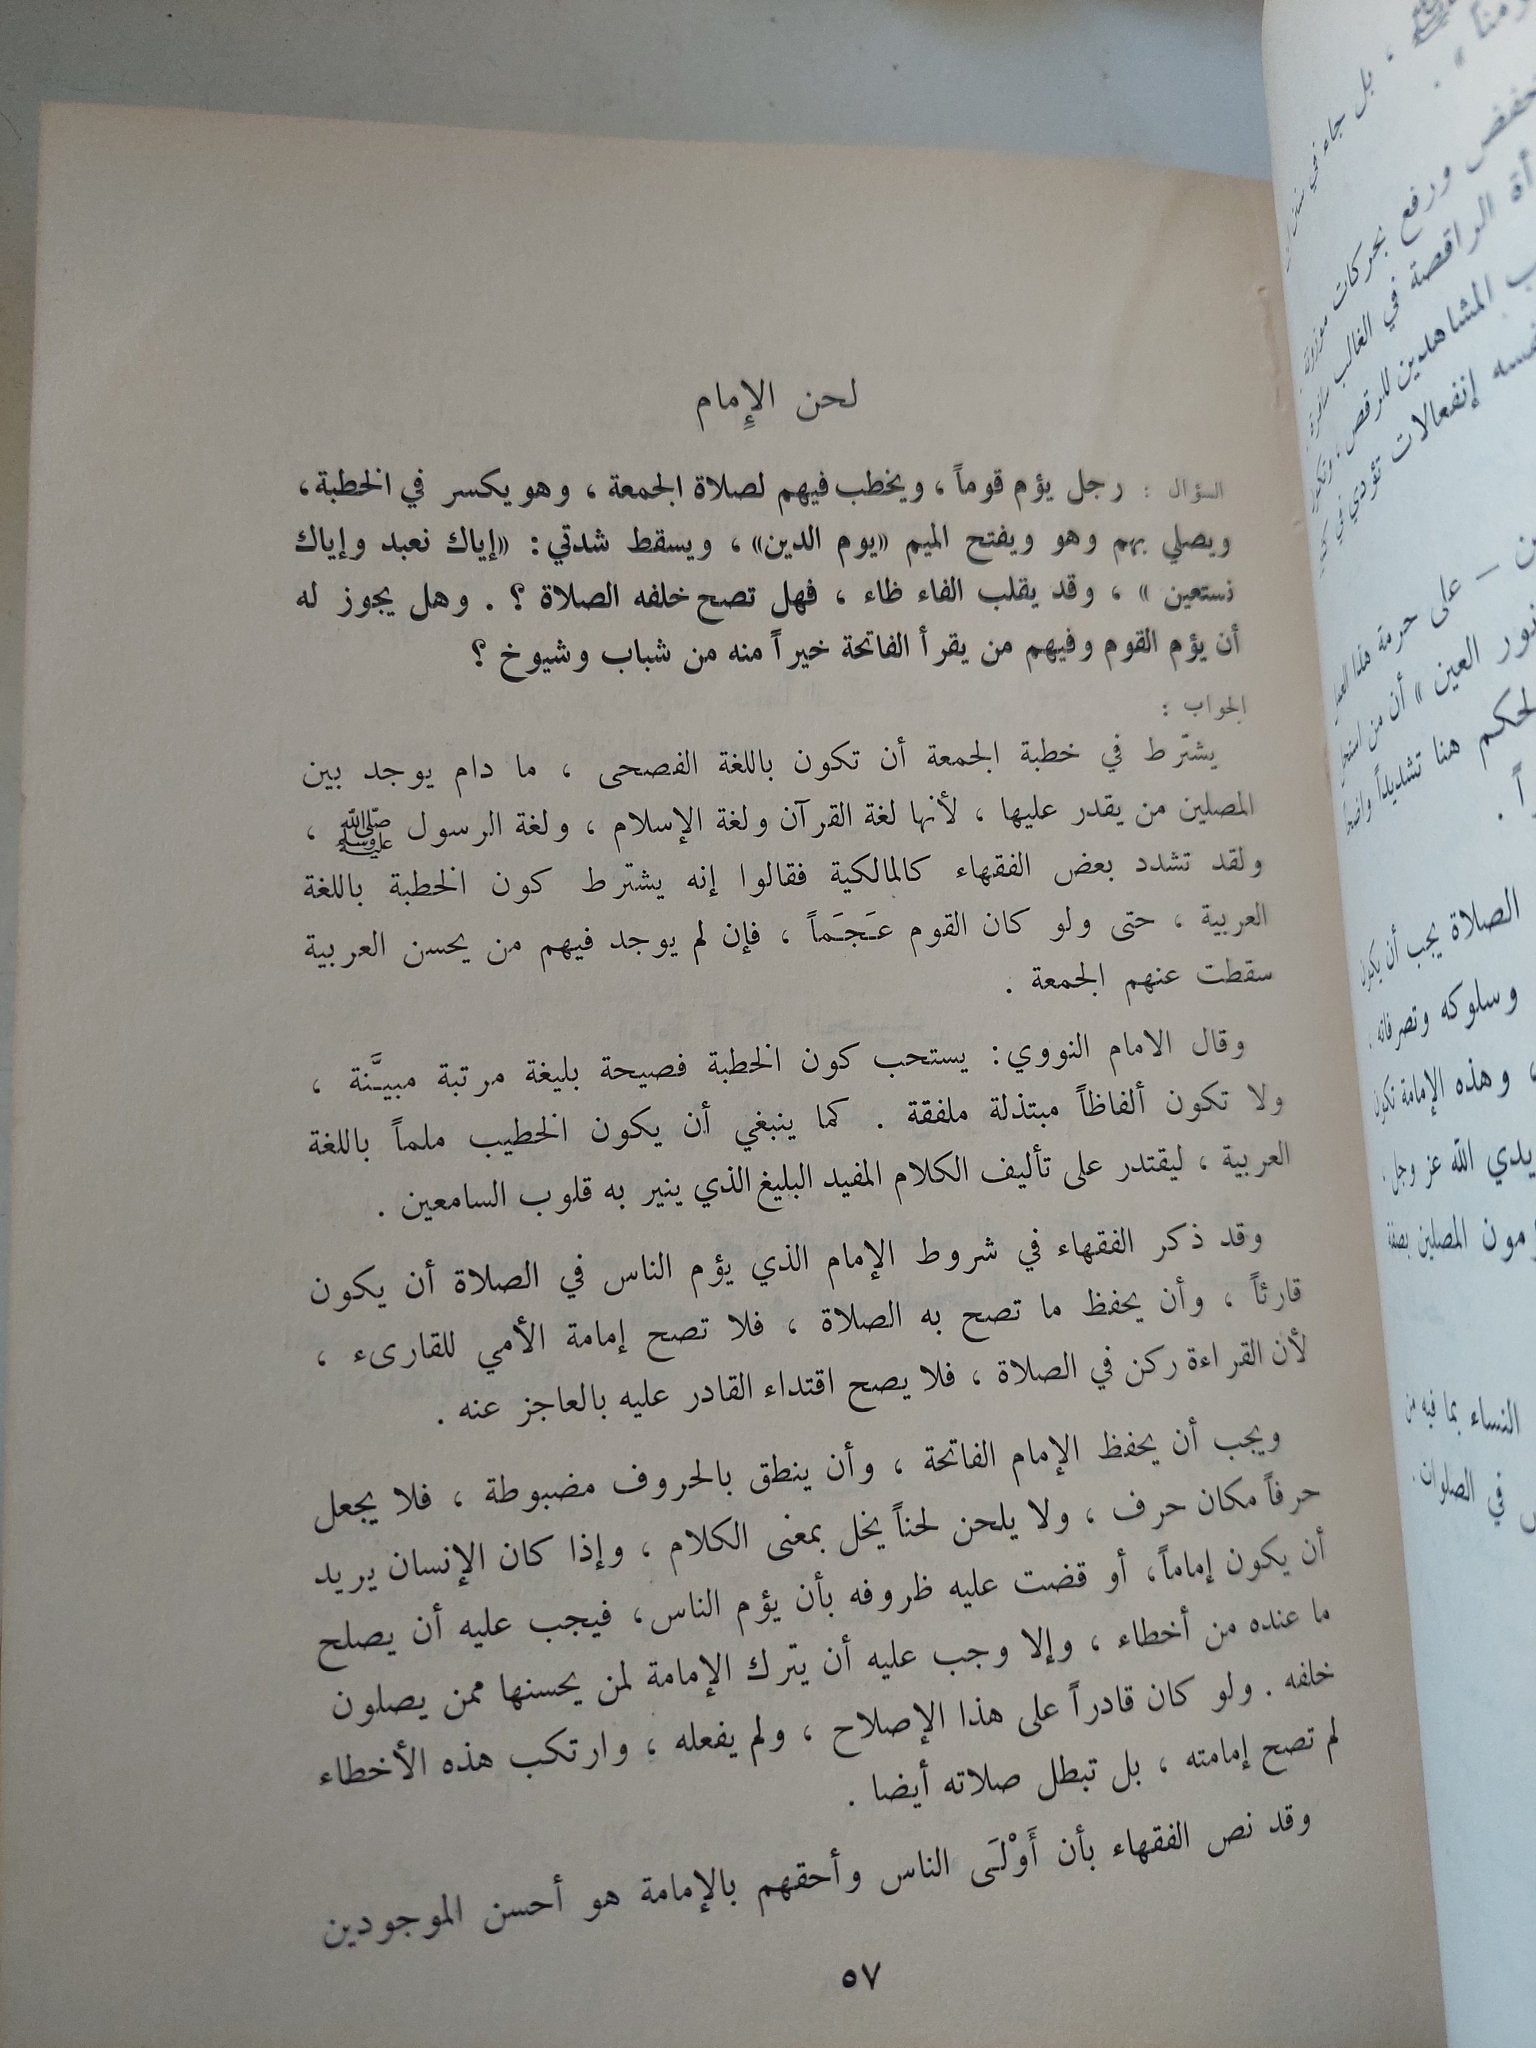 لحن الإِمام
السؤال : رجل يؤم قوماً ، ويخطب فيهم لصلاة الجمعة ، وهو يكسر في الخطبة،
ويصلي بهم وهو ويفتح الميم «يوم الدين» ، ويسقط شدتي: «إياك نعبد وإياك
نستعين » ، وقد يقلب الفاء ظاء ، فهل تصح خلفه الصلاة ؟ . وهل يجوز له
أن يؤم القوم وفيهم من يقرأ الفاتحة خيراً منه من شباب وشيوخ ؟
الجواب :
يشتّرط في خطبة الجمعة أن تكون باللغة الفصحى ، ما دام يوجد بين
المصلين من يقدر عليها ، لأنها لغة القرآن ولغة الإسلام ، ولغة الرسول ﷺ ،
ولقد تشدد بعض الفقهاء كالمالكية فقالوا إنه يشترط كون الخطبة باللغة
العربية ، حتى ولو كان القوم عـَجـَماً ، فإن لم يوجد فيهم من يحسن العربية
سقطت عنهم الجمعة .
وقال الامام النووي: يستحب كون الخطبة فصيحة بليغة مرتبة مبيـَّنة ،
ولا تكون ألفاظاً مبتذلة ملفقة . كما ينبغي أن يكون الخطيب ملماً باللغة
العربية ، ليقتدر على تأليف الكلام المفيد البليغ الذي ينير به قلوب السامعين .
وقد ذكر الفقهاء في شروط الإمام الذي يؤم الناس في الصلاة أن يكون
قارئاً ، وأن يحفظ ما تصح به الصلاة ، فلا تصح إمامة الأمي للقارىء ،
لأن القراءة ركن في الصلاة ، فلا يصح اقتداء القادر عليه بالعاجز عنه .
ويجب أن يحفظ الإمام الفاتحة ، وأن ينطق بالحروف مضبوطة ، فلا يجعل
حرفاً مكان حرف ، ولا يلحن لحناً يخل بمعنى الكلام ، وإذا كان الإنسان يريد
أن يكون إماماً، أو قضت عليه ظروفه بأن يؤم الناس، فيجب عليه أن يصلح
ما عنده من أخطاء ، وإلا وجب عليه أن يترك الإمامة لمن يحسنها ممن يصلون
خلفه . ولو كان قادراً على هذا الإصلاح ، ولم يفعله ، وارتكب هذه الأخطاء
لم تصح إمامته ، بل تبطل صلاته أيضا .
وقد نص الفقهاء بأن أَوْلـَى الناس وأحقهم بالإمامة هو أحسن الموجودين
٥٧
بل جاء في
ورفع بحركات موزونة
الراقصة في الغالب
المشاهدين للرقص ، وتكون
إنفعالات تؤدي في
– على حرمة هذا العمل
نور العين » أن من استحل
لحكم هنا تشديداً واضحاً
الصلاة يجب أن يكون
وسلوكه وتصرفاته .
، وهذه الإمامة تكون
يدي الله عز وجل ،
المصلين بصفة
النساء بما فيه من
في الصلوات .